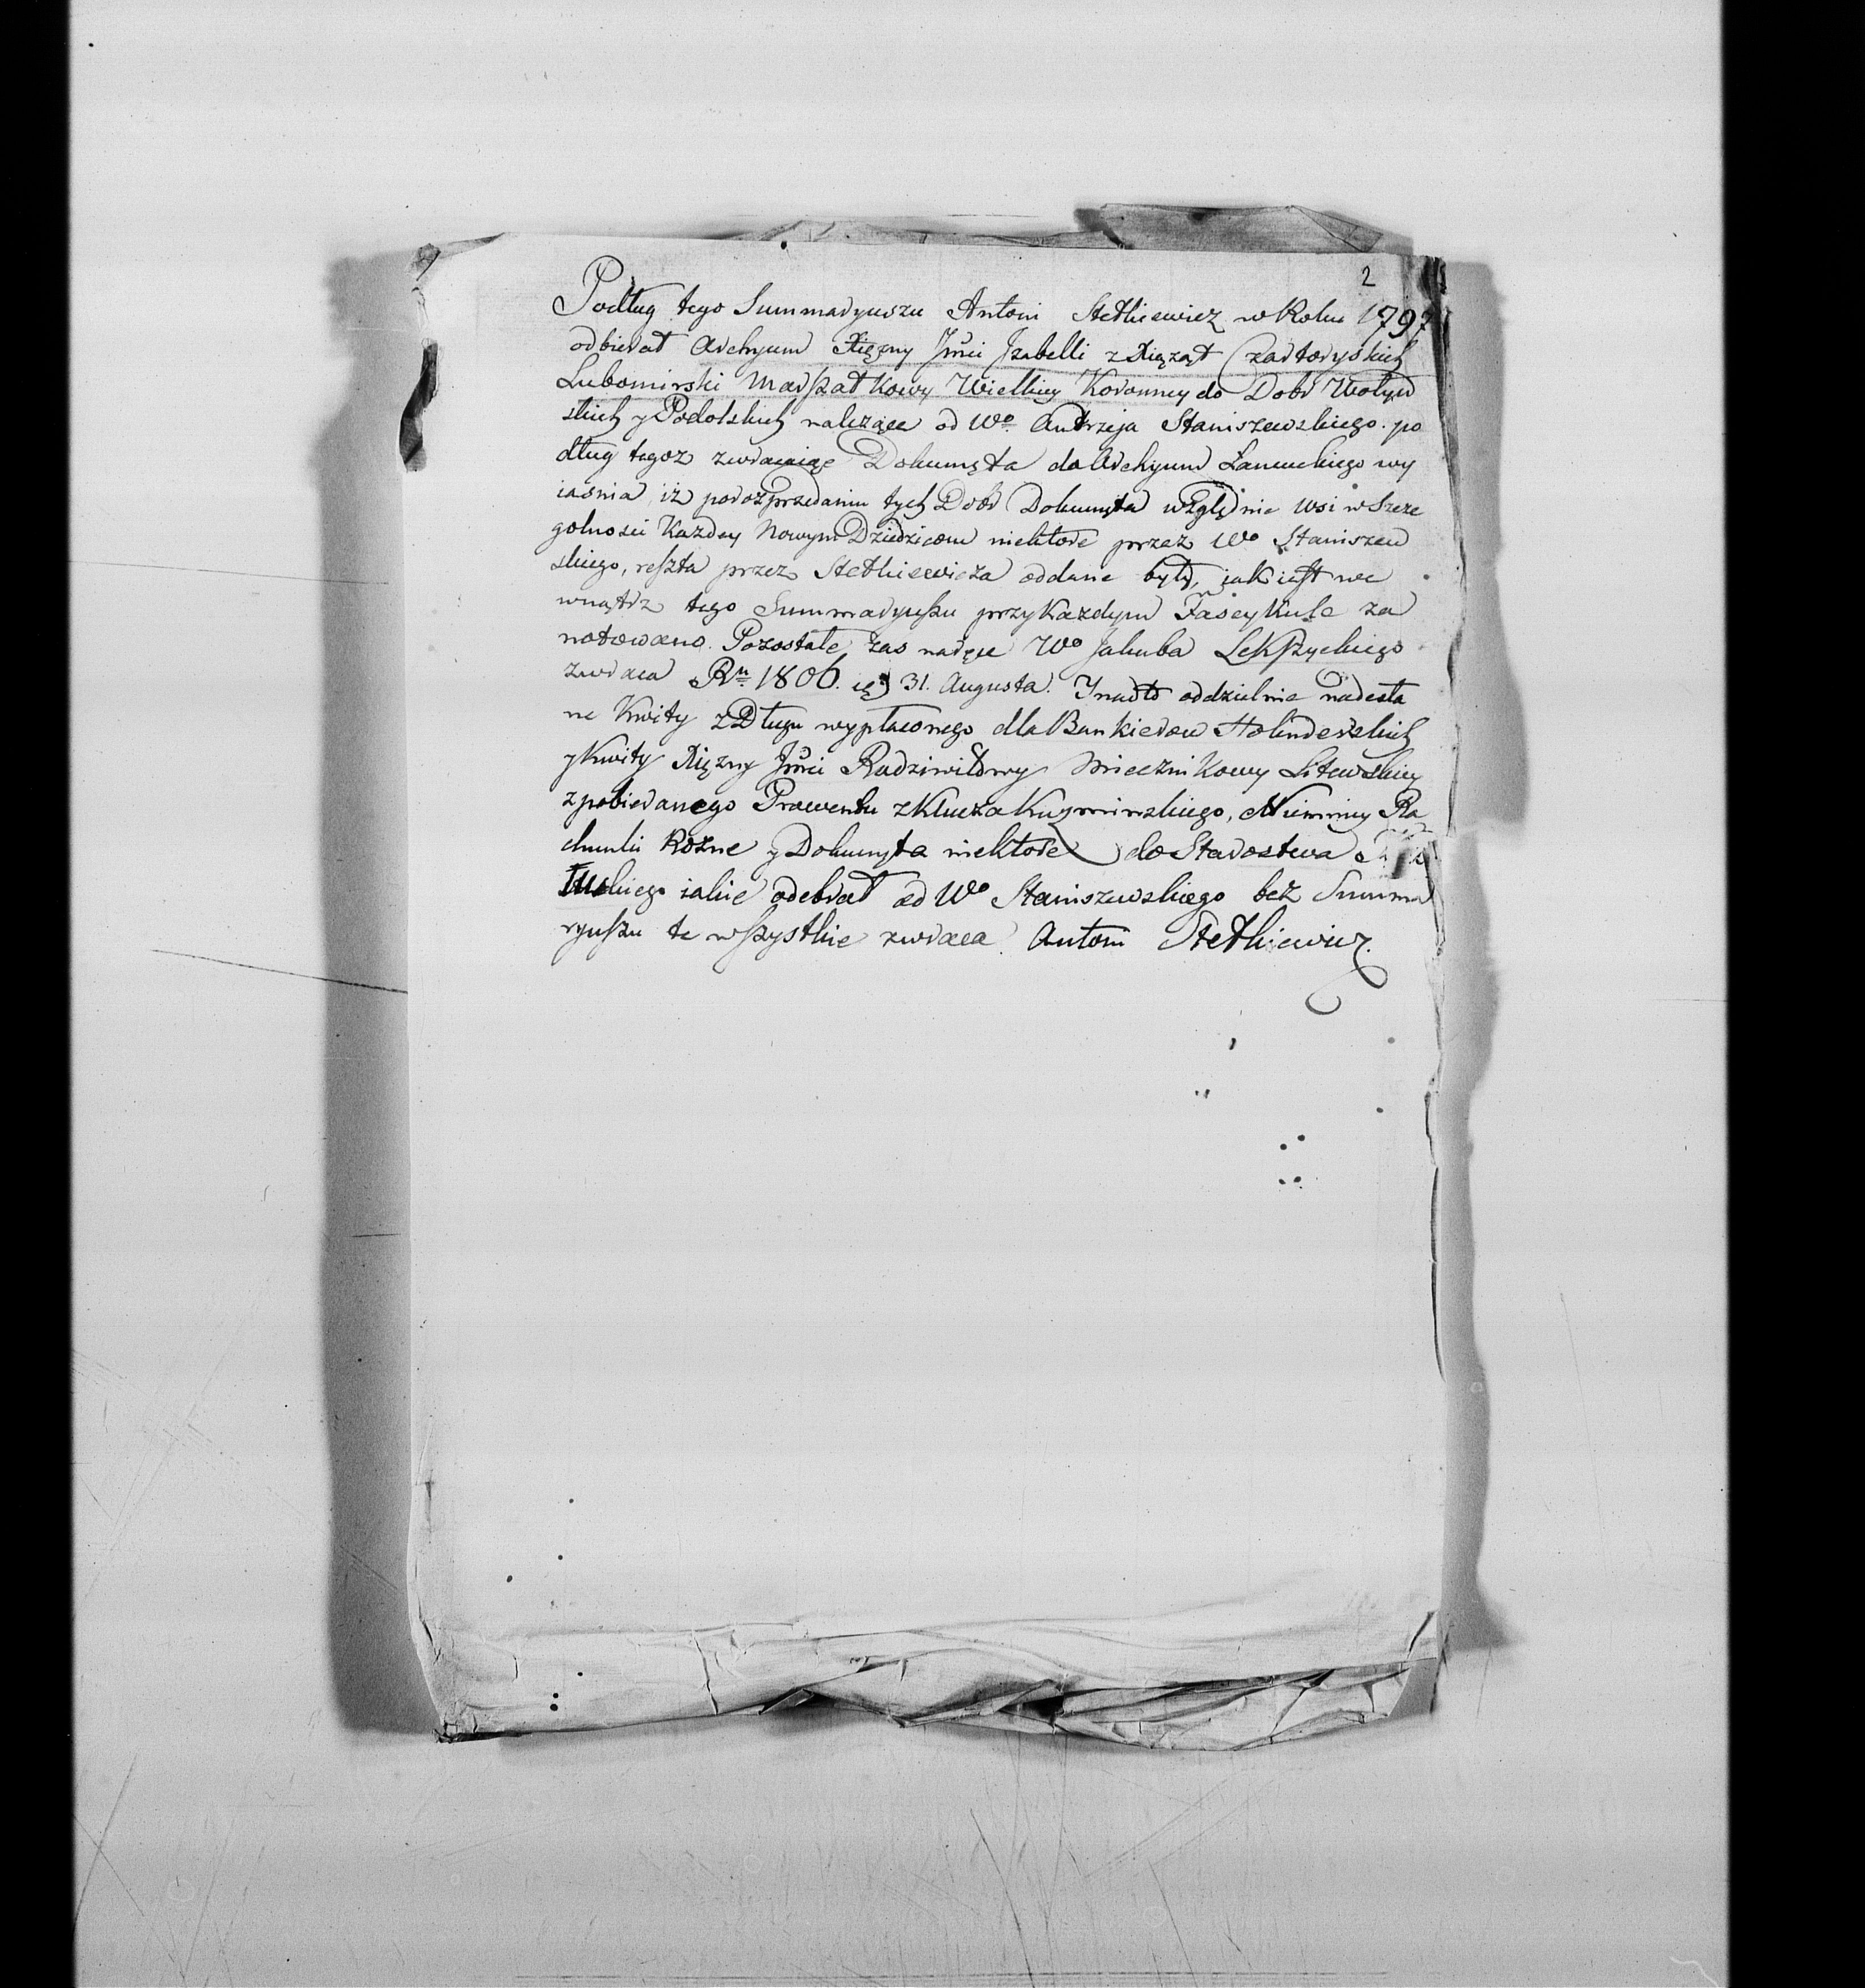 2
Podług tego Summaryuszu Antoni Stetkiewicz w Roku 1797
odbierał Archyum Xiężny Jmci Izabelli z Xiążąt Czartoryskich
Lubomirski Marszałkowy Wielkiey Koronney do Dobr Wołyn
skich y Podolskich należące od Wo Andrzeja Staniszewskiego. po
dług tegoz zwracaiąc Dokumęta do Archyum Łancuckiego wy
iasnia iż po rozprzedaniu tych Dobr Dokumęta względnie wsi w Szcze
golnosci Kazdey Nowym Dziedzicom niektore przez Wo Staniszew
skiego, reszta przez Stetkiewicza oddane były, jak iest we
wnątrz tego Summaryuszu przy Kazdym Fascykule za
notowano. Pozostałe zas na ręce Wo Jakuba Lekszyckiego
zwraca Ru 1806. 31. Augusta. Y nadto oddzielnie nadesła
ne Kwity z Długu wypłaconego dla Bankierow Holinderskich
y Kwity Xiężny Jmci Radziwiłłowy Miecznikowy Litewskiey
z pobieranego Prowentu z Klucza Kuzminskiego, Niemniey Ra
chunki Rożne y Dokumęta niektore do Starostwa
skiego iakie odebrał od Wo Staniszewskiego bez Summa
ryuszu te wszystkie zwraca Antoni Stetkiewicz.